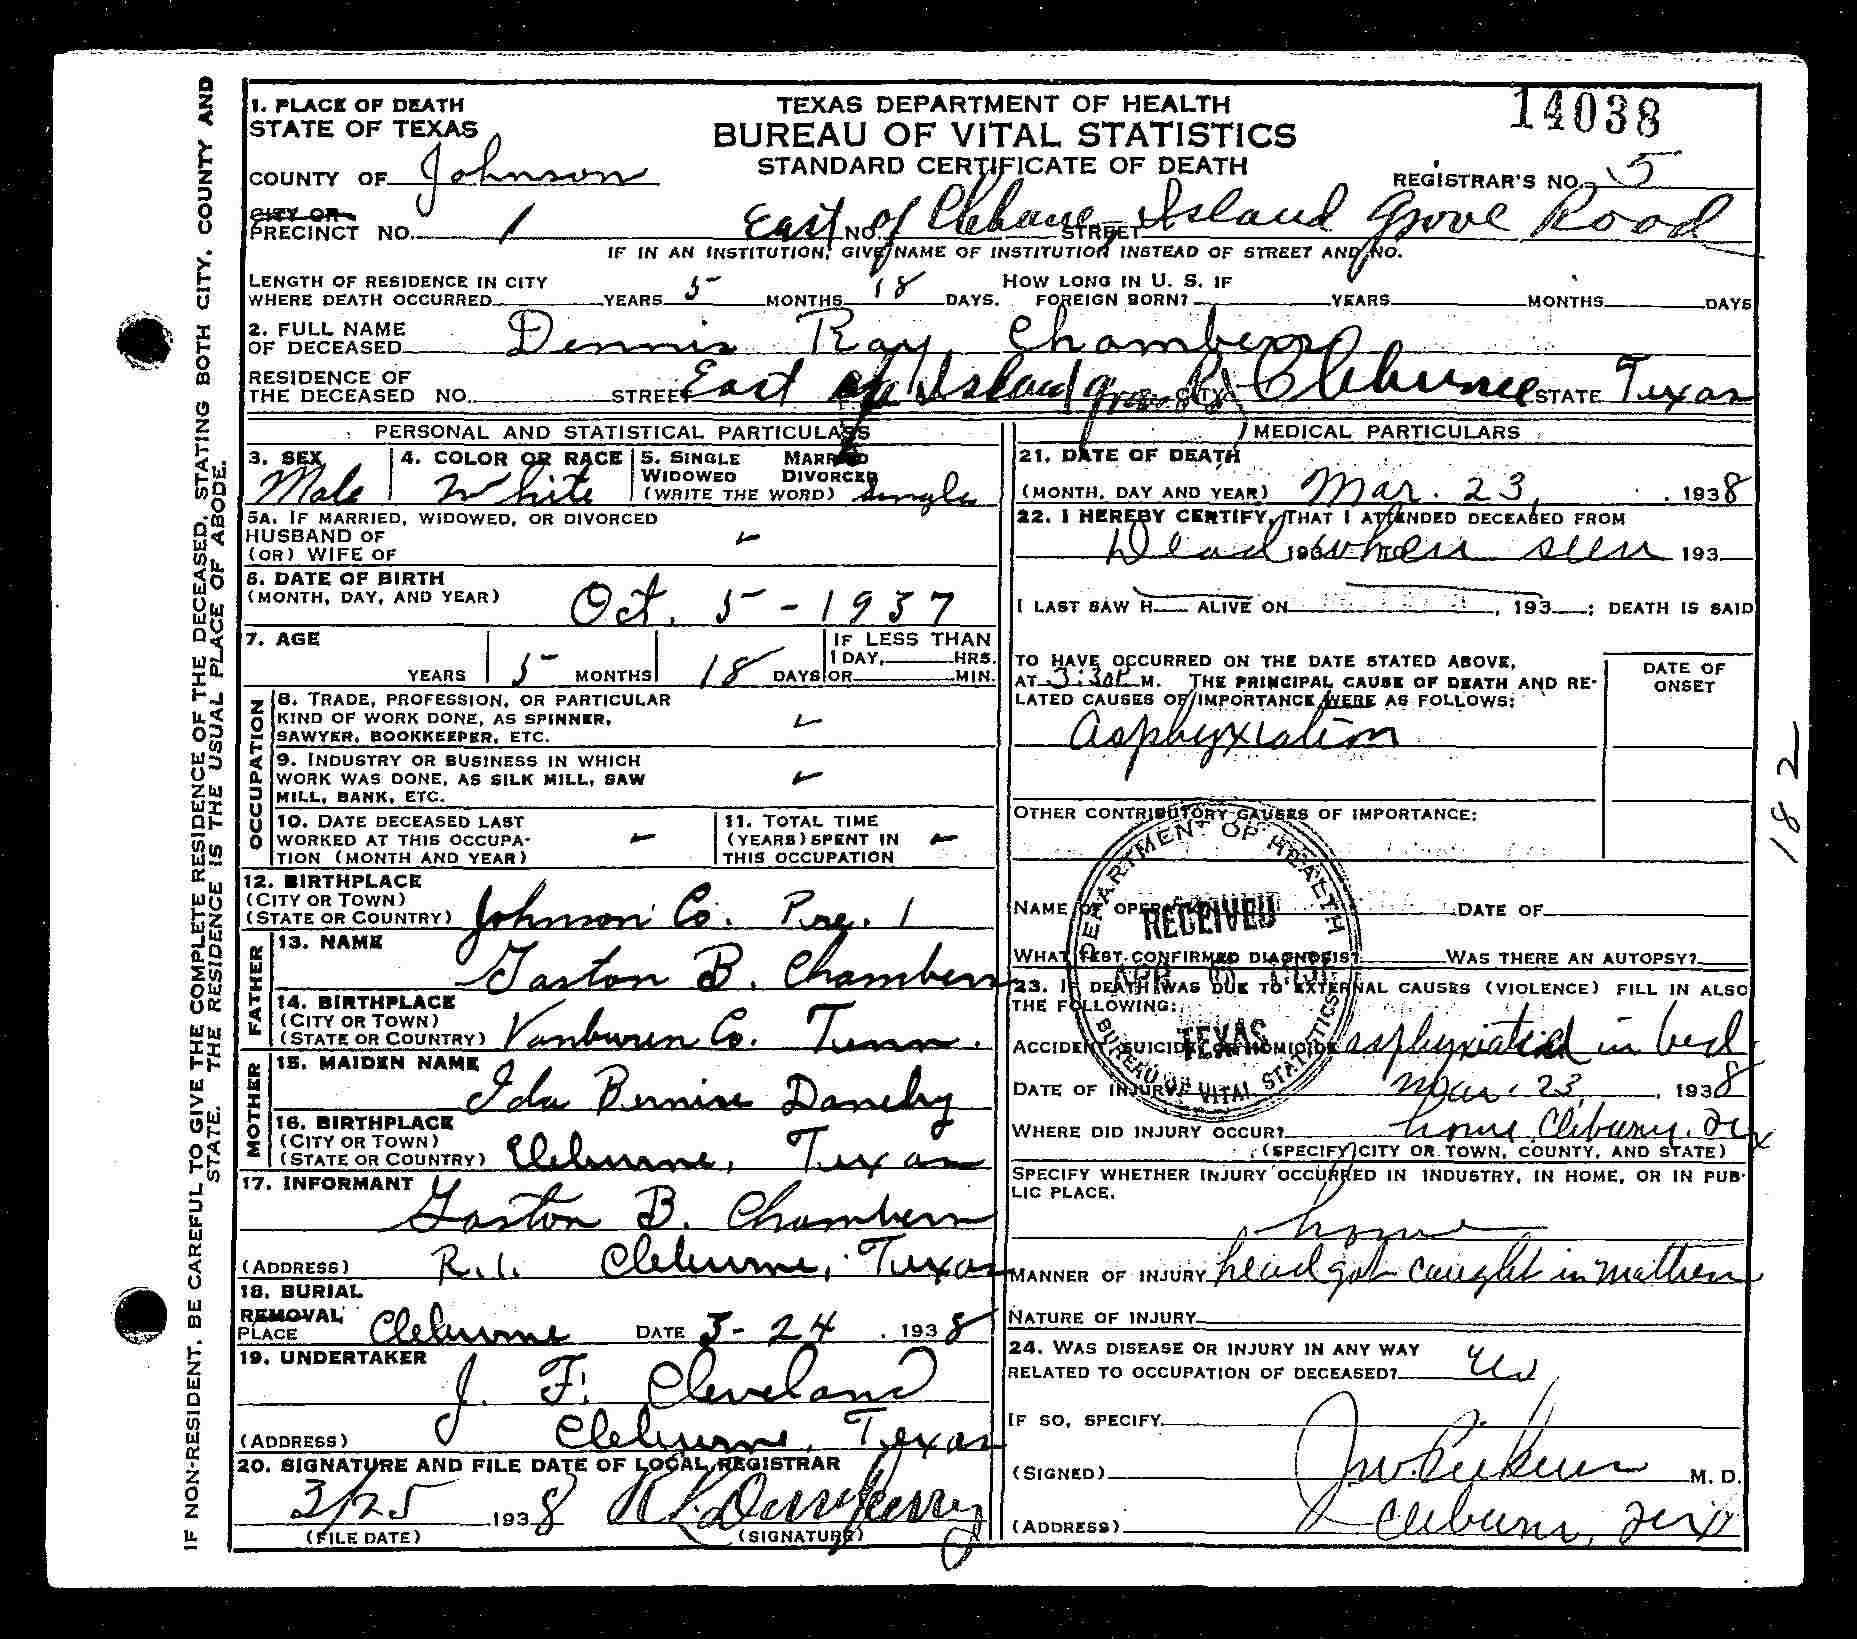 IF NON-RESIDENT, BE CAREFUL TO GIVE THE COMPLETE RESIDENCE OF THE DECEASED, STATING BOTH CITY, COUNTY AND
STATE. THE RESIDENCE IS THE USUAL PLACE OF ABODE.
1. PLACE OF DEATH
STATE OF TEXAS
TEXAS DEPARTMENT OF HEALTH
BUREAU OF VITAL STATISTICS
STANDARD CERTIFICATE OF DEATH
14038
COUNTY OF Johnson
REGISTRAR'S NO. 5
CITY OR
PRECINCT NO. 1 East of Cleburne, Island Grove Road
NO. STREET
IF IN AN INSTITUTION, GIVE NAME OF INSTITUTION INSTEAD OF STREET AND NO.
LENGTH OF RESIDENCE IN CITY
WHERE DEATH OCCURRED YEARS 5 MONTHS 18 DAYS.
HOW LONG IN U. S. IF
FOREIGN BORN? YEARS MONTHS DAYS
2. FULL NAME
OF DECEASED Dennis Ray Chambers
RESIDENCE OF
THE DECEASED NO. STREET East Island Grove Rd Cleburne STATE Texas
PERSONAL AND STATISTICAL PARTICULARS
3. SEX
Male
4. COLOR OR RACE
White
5. SINGLE MARRIED
WIDOWED DIVORCED
(WRITE THE WORD) Single
5A. IF MARRIED, WIDOWED, OR DIVORCED
HUSBAND OF
(OR) WIFE OF
6. DATE OF BIRTH
(MONTH, DAY, AND YEAR) Oct. 5-1937
7. AGE
YEARS 5 MONTHS 18 DAYS
IF LESS THAN
1 DAY, HRS.
OR MIN.
OCCUPATION
8. TRADE, PROFESSION, OR PARTICULAR
KIND OF WORK DONE, AS SPINNER,
SAWYER, BOOKKEEPER, ETC.
9. INDUSTRY OR BUSINESS IN WHICH
WORK WAS DONE, AS SILK MILL, SAW
MILL, BANK, ETC.
10. DATE DECEASED LAST
WORKED AT THIS OCCUPA-
TION (MONTH AND YEAR) -
11. TOTAL TIME
(YEARS) SPENT IN
THIS OCCUPATION -
12. BIRTHPLACE
(CITY OR TOWN)
(STATE OR COUNTRY) Johnson Co. Pre. 1
FATHER
13. NAME
Gaston B. Chambers
14. BIRTHPLACE
(CITY OR TOWN)
(STATE OR COUNTRY) Vanburen Co. Tenn.
MOTHER
15. MAIDEN NAME
Ida Bernise
16. BIRTHPLACE
(CITY OR TOWN)
(STATE OR COUNTRY) Cleburne, Texas
17. INFORMANT
Gaston B. Chambers
(ADDRESS) R.1. Cleburne, Texas
18. BURIAL
REMOVAL
PLACE Cleburne DATE 3-24, 1938
19. UNDERTAKER
J. F. Cleveland
(ADDRESS) Cleburne, Texas
20. SIGNATURE AND FILE DATE OF LOCAL REGISTRAR
3/25 1938
(FILE DATE) (SIGNATURE)
MEDICAL PARTICULARS
21. DATE OF DEATH
(MONTH, DAY AND YEAR) Mar. 23, 1938
22. I HEREBY CERTIFY, THAT I ATTENDED DECEASED FROM
Dead when seen 193
I LAST SAW H ALIVE ON , 193 ; DEATH IS SAID
TO HAVE OCCURRED ON THE DATE STATED ABOVE,
AT 3:30P M. THE PRINCIPAL CAUSE OF DEATH AND RE-
LATED CAUSES OF IMPORTANCE WERE AS FOLLOWS:
DATE OF
ONSET
Asphyxiation
OTHER CONTRIBUTORY CAUSES OF IMPORTANCE:
NAME OF OPERATION DATE OF
WHAT TEST CONFIRMED DIAGNOSIS? WAS THERE AN AUTOPSY?
DEPARTMENT OF HEALTH
RECEIVED
APR
TEXAS
BUREAU OF VITAL STATISTICS
23. IF DEATH WAS DUE TO EXTERNAL CAUSES (VIOLENCE) FILL IN ALSO
THE FOLLOWING:
ACCIDENT, SUICIDE, OR HOMICIDE asphyxiated in bed
DATE OF INJURY Mar. 23, 1938
WHERE DID INJURY OCCUR? home, Cleburne, Tex
(SPECIFY CITY OR TOWN, COUNTY, AND STATE)
SPECIFY WHETHER INJURY OCCURRED IN INDUSTRY, IN HOME, OR IN PUB-
LIC PLACE.
home
MANNER OF INJURY head got caught in mattress
NATURE OF INJURY
24. WAS DISEASE OR INJURY IN ANY WAY
RELATED TO OCCUPATION OF DECEASED? no
IF SO, SPECIFY
(SIGNED) M. D.
(ADDRESS) Cleburne, Tex
182